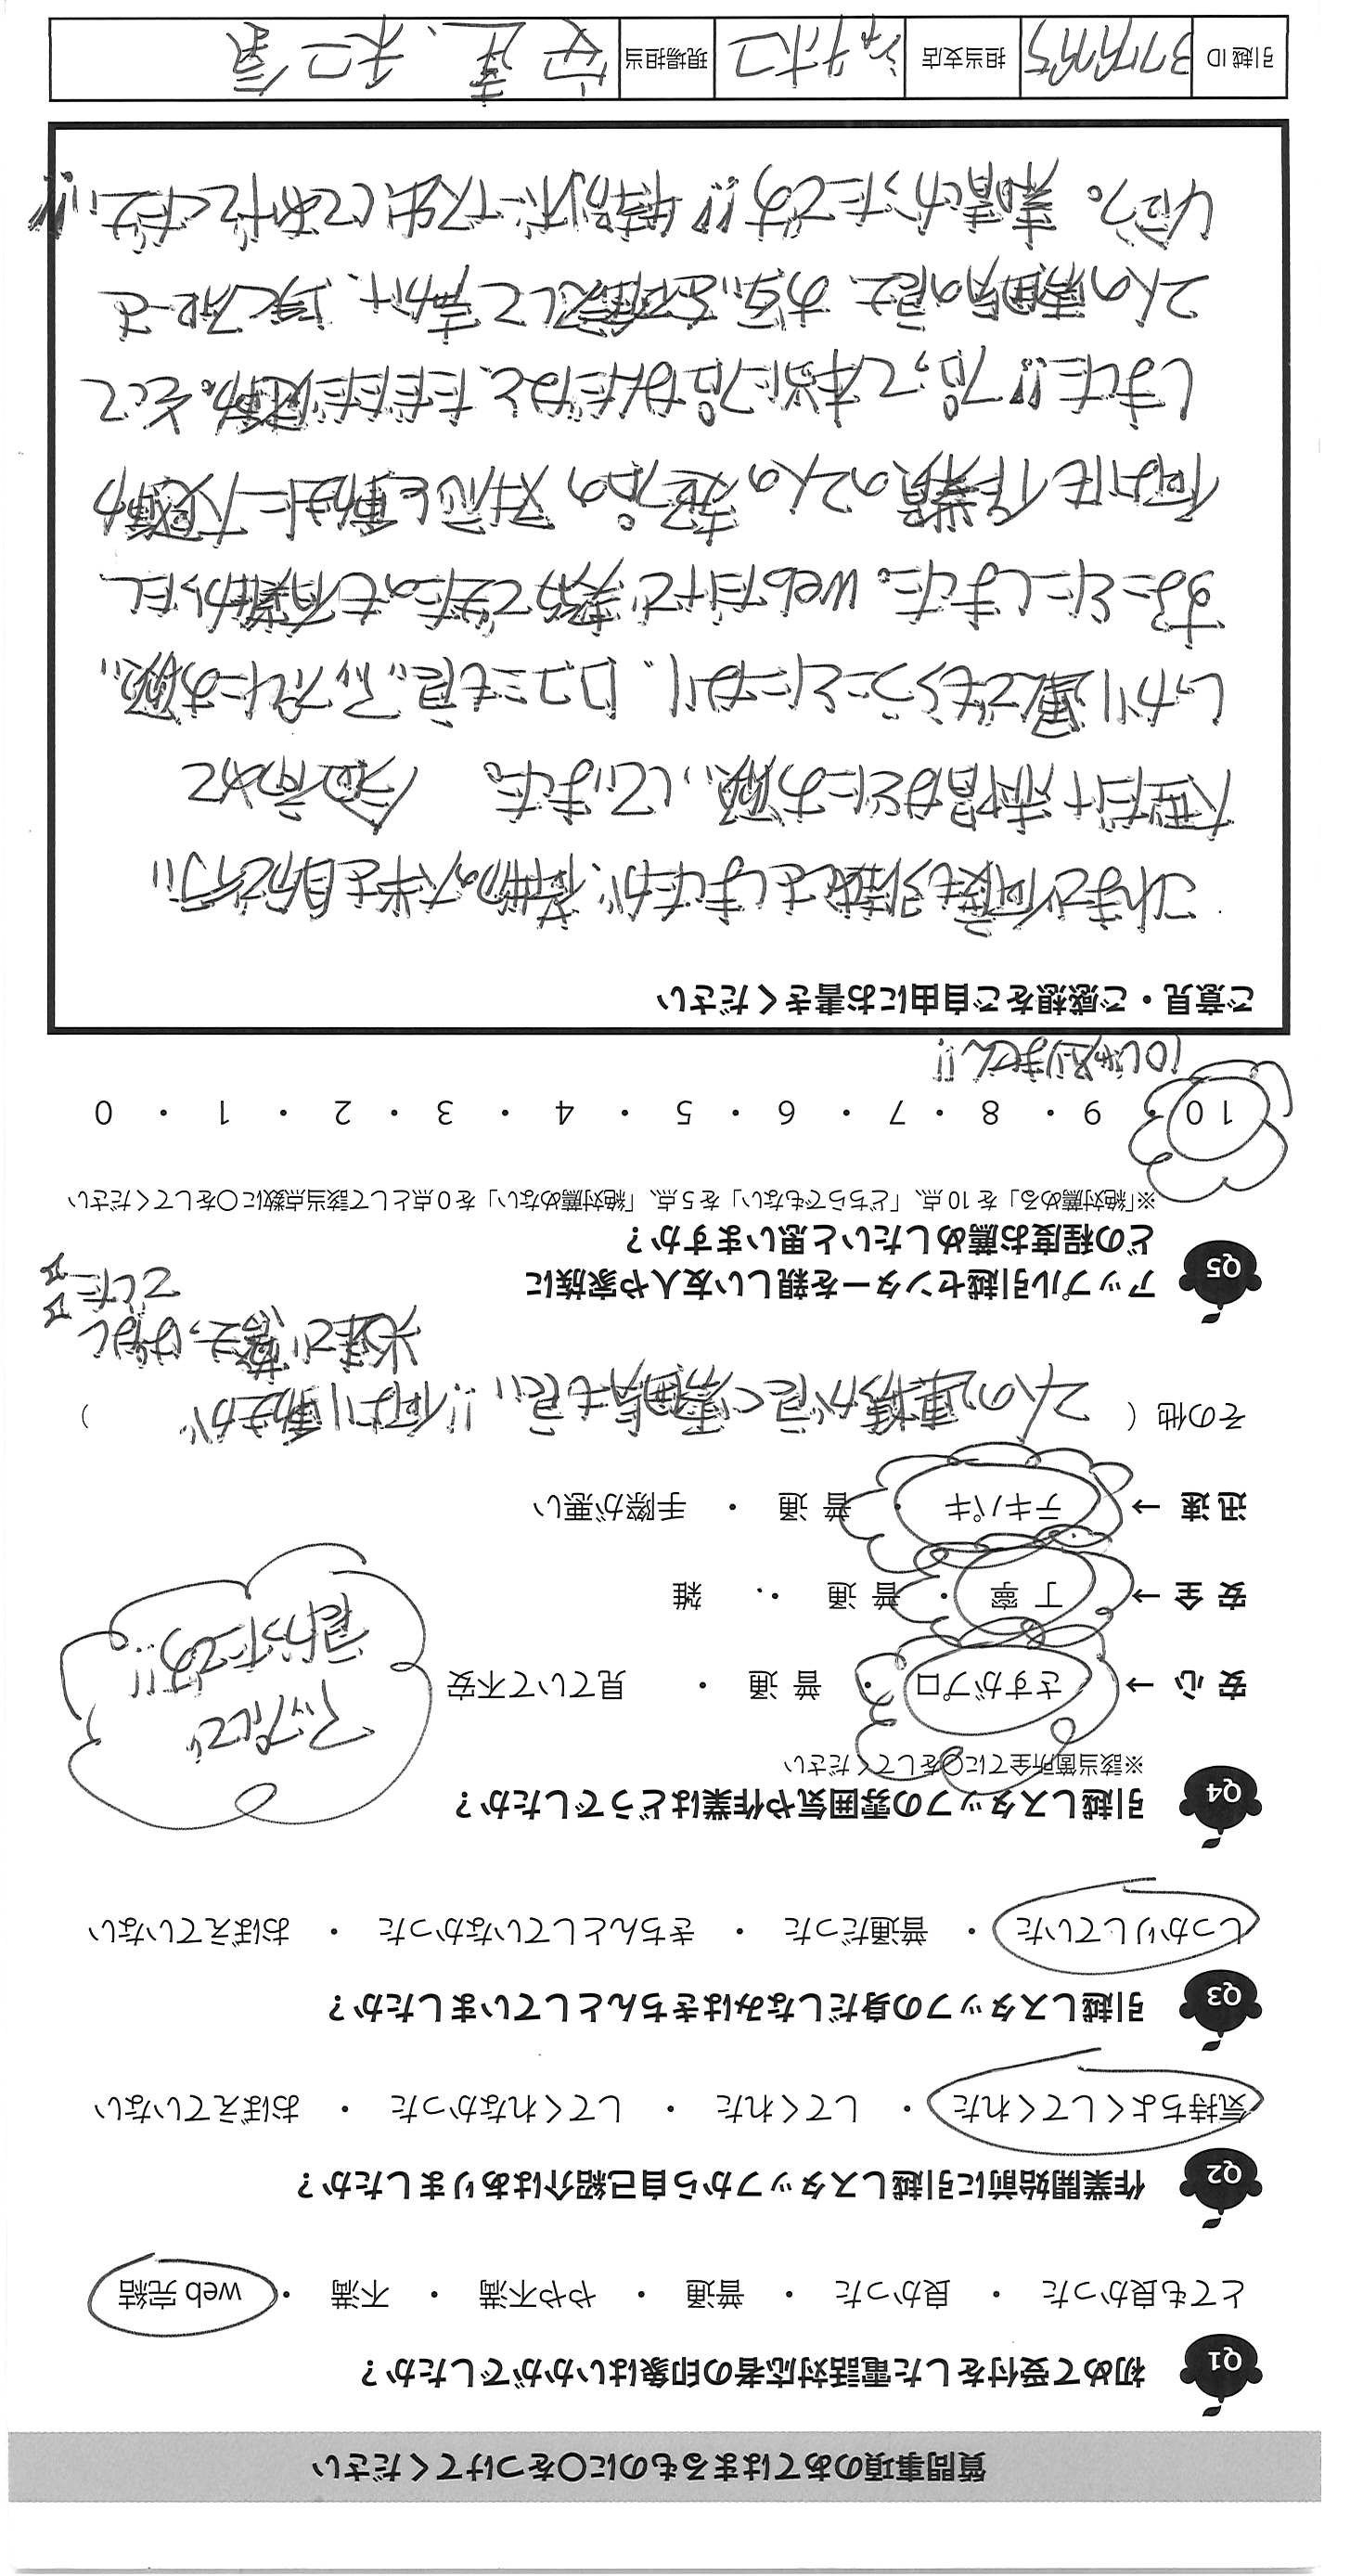 質問事項のあてはまるものに〇をつけてください
Q1 初めて受付をした電話対応者の印象はいかがでしたか？
とても良かった ・ 良かった ・ 普通 ・ やや不満 ・ 不満 ・ web 完結
Q2 作業開始前に引越しスタッフから自己紹介はありましたか？
気持ちよくしてくれた ・ してくれた ・ してくれなかった ・ おぼえていない
Q3 引越しスタッフの身だしなみはきちんとしていましたか？
しっかりしていた ・ 普通だった ・ きちんとしていなかった ・ おぼえていない
Q4 引越しスタッフの雰囲気や作業はどうでしたか？
※該当箇所全てに〇をしてください
安 心 → さすがプロ ・ 普 通 ・ 見ていて不安
安 全 → 丁 寧 ・ 普 通 ・ 雑
迅 速 → テキパキ ・ 普 通 ・ 手際が悪い
アップルで
良かったです!!
その他（ 2人の連携が良く雰囲気も良い!! 何より動きが ）
迅速で驚きっぱなし
でした
Q5 アップル引越センターを親しい友人や家族に
どの程度お薦めしたいと思いますか？
※「絶対薦める」を 10 点、「どちらでもない」を 5 点、「絶対薦めない」を 0 点として該当点数に〇をしてください
10 ・ 9 ・ 8 ・ 7 ・ 6 ・ 5 ・ 4 ・ 3 ・ 2 ・ 1 ・ 0
10じゃ足りません!!
ご意見・ご感想をご自由にお書きください
これまで何度も引越をしましたが、荷物の大半を自分で行い
大型だけ赤帽などにお願いしていました。 今回初めて
しっかり運んでもらうことになり、口コミも良いアップルにお願い
することにしました。webだけで契約できたのも有難かったし
何よりも作業員の2人の超プロの対応と動きに大感動
しました!! プロって本当にプロなんだなと、ただただ感動。そして
2人の雰囲気の良さ、お互いを尊重して声かけ、
素晴しかったです!! 特別ボーナス出してあげてください!!
引越 ID 担当支店 サッポロ 現場担当